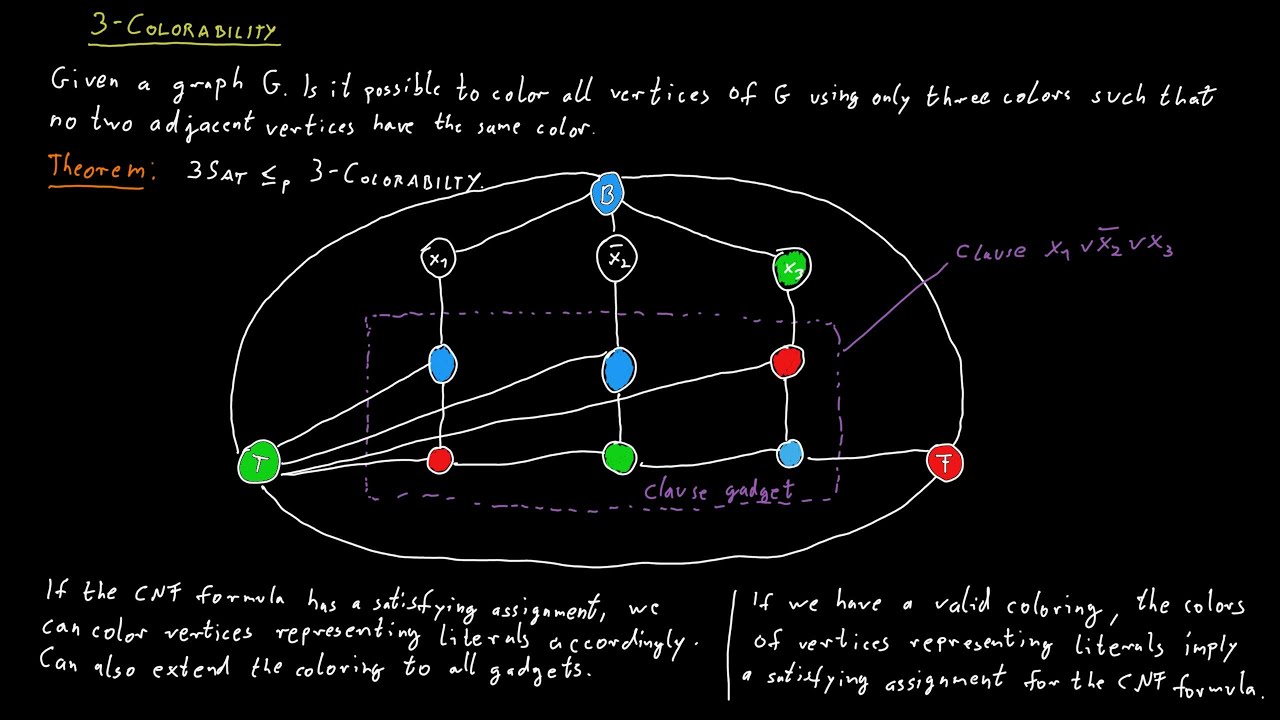 3-COLORABILITY
Given a graph G. Is it possible to color all vertices of G using only three colors such that
no two adjacent vertices have the same color.
Theorem: 3SAT ≤p 3-COLORABILTY.
B
x1
x̅2
x3
Clause x1 ∨ x̅2 ∨ x3
T
F
Clause gadget
If the CNF formula has a satisfying assignment, we
can color vertices representing literals accordingly.
Can also extend the coloring to all gadgets.
If we have a valid coloring, the colors
of vertices representing literals imply
a satisfying assignment for the CNF formula.